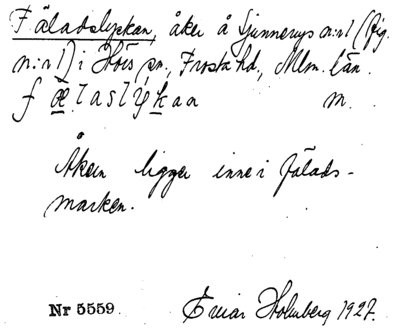 Fäladslyckan, åker å Sjunnerup n:r 1 (fig.
n:r 1) i Hörs sn., Frosta hd., Mlm. län.
f æ l a s l ý k a n m.
Åkern ligger inne i fälads-
marken.
Nr 5559. Einar Holmberg 1927.